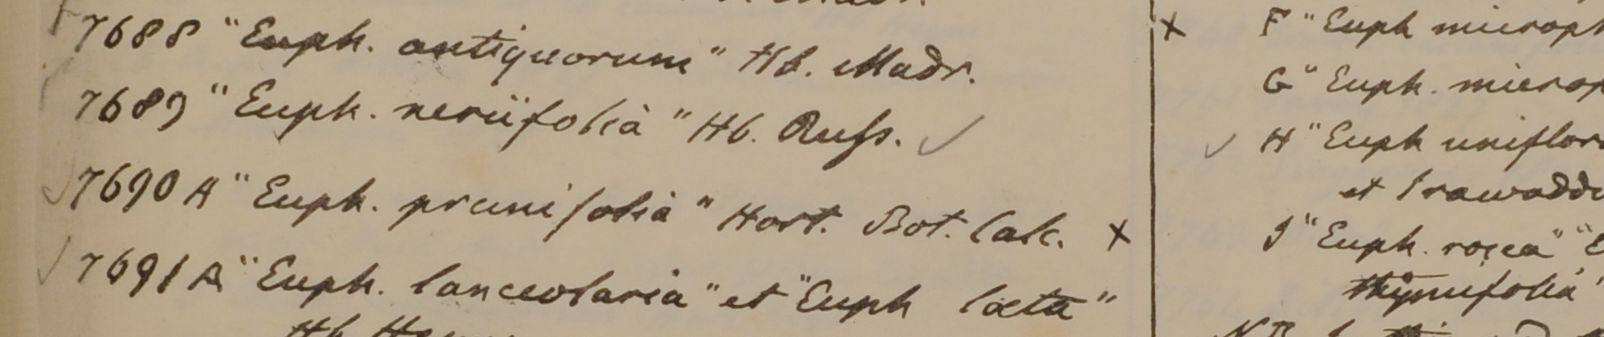 7688 "Euph. antiquorum" Hb. Madr.
7689 "Euph. neriifolia" Hb. Russ. ✓
7690 A "Euph. prunifolia" Hort. Bot. Calc. ×
7691 A "Euph. lanceolaria" et "Euph laeta"
× F "Euph microph
G "Euph. microp
✓ H "Euph uniflor
et Irawadd
I "Euph. rosea" "E
thymifolia"